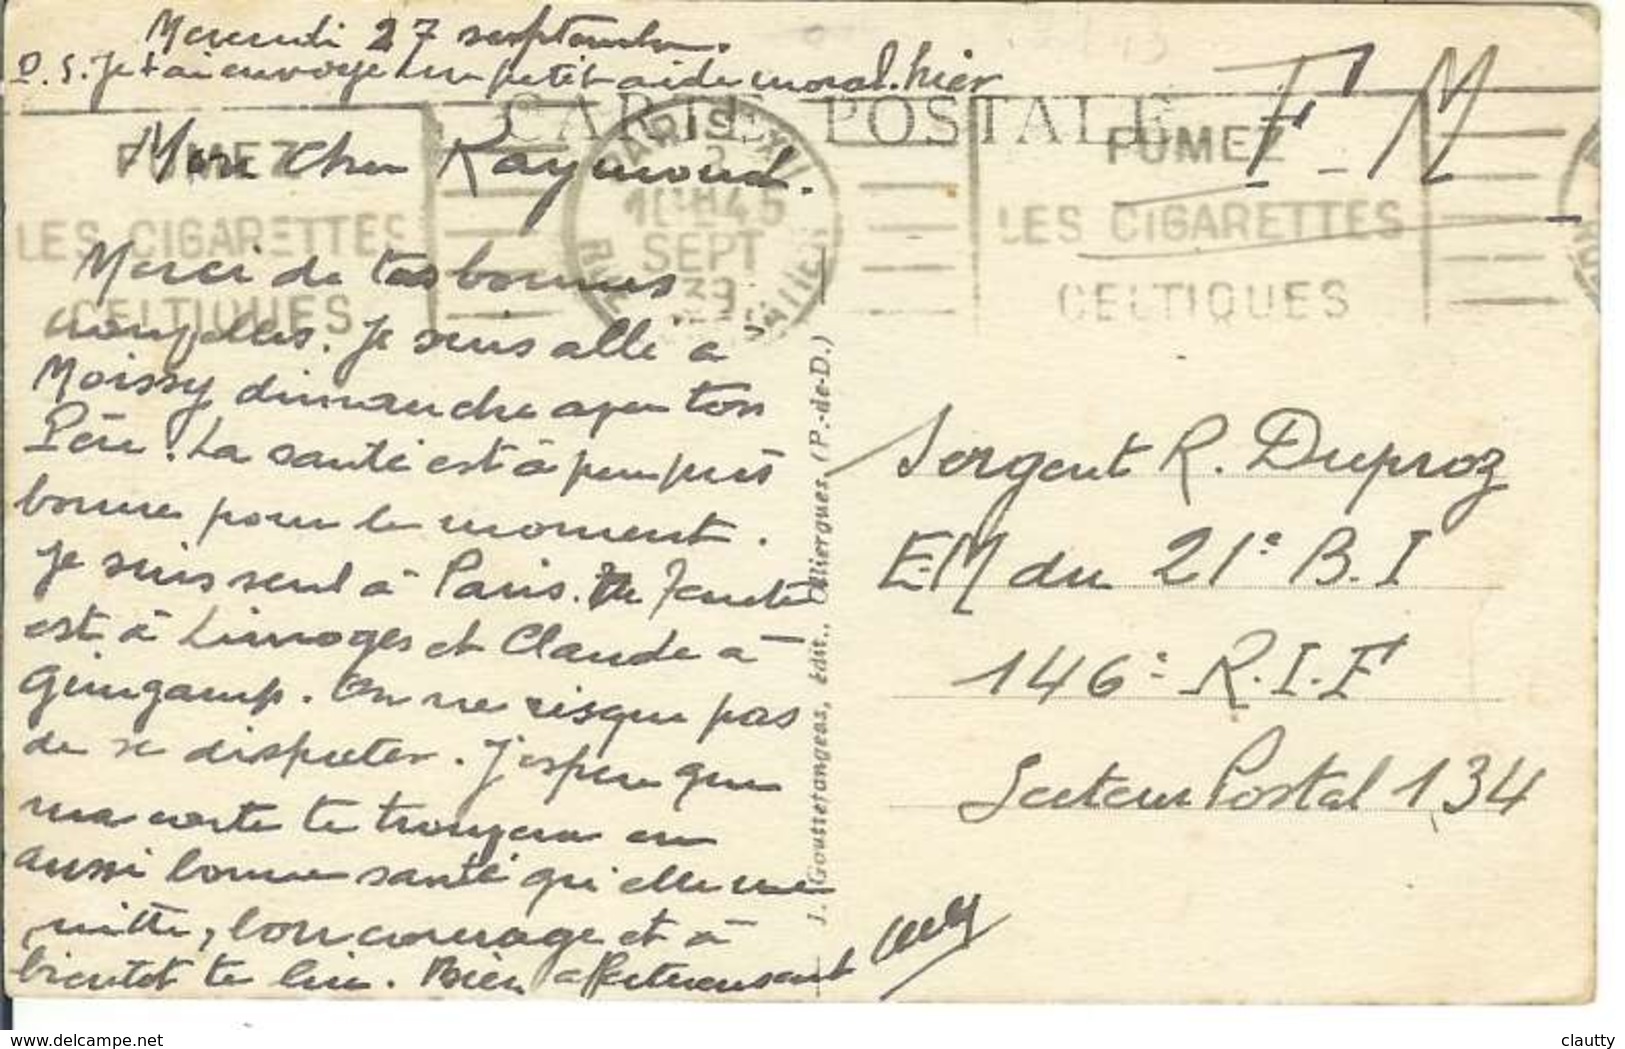 Mercredi 27 septembre.
P.S. Je t'ai envoyé un petit aide moral hier
CARTE POSTALE
F M
Mon cher Raymond.
FUMEZ
LES CIGARETTES
CELTIQUES
PARIS XVI
10H45
SEPT
39
FUMEZ
LES CIGARETTES
CELTIQUES
Merci de tes bonnes
nouvelles. Je suis allé à
Moissy dimanche avec ton
Père. La santé est à peu près
bonne pour le moment.
Je suis seul à Paris.
est à Limoges et Claude à
Guingamp. On ne risque pas
de se disputer. J'espère que
ma carte te trouvera en
aussi bonne santé qu'elle me
quitte, bon courage et à
bientôt te lire. Bien affectueusement
Sergent R. Duproz
E.M du 21e B.I
146e R.I.F
Secteur Postal 134
J. Gouttefangeas, édit., Olliergues, (P.-de-D.)
www.delcampe.net
clautty